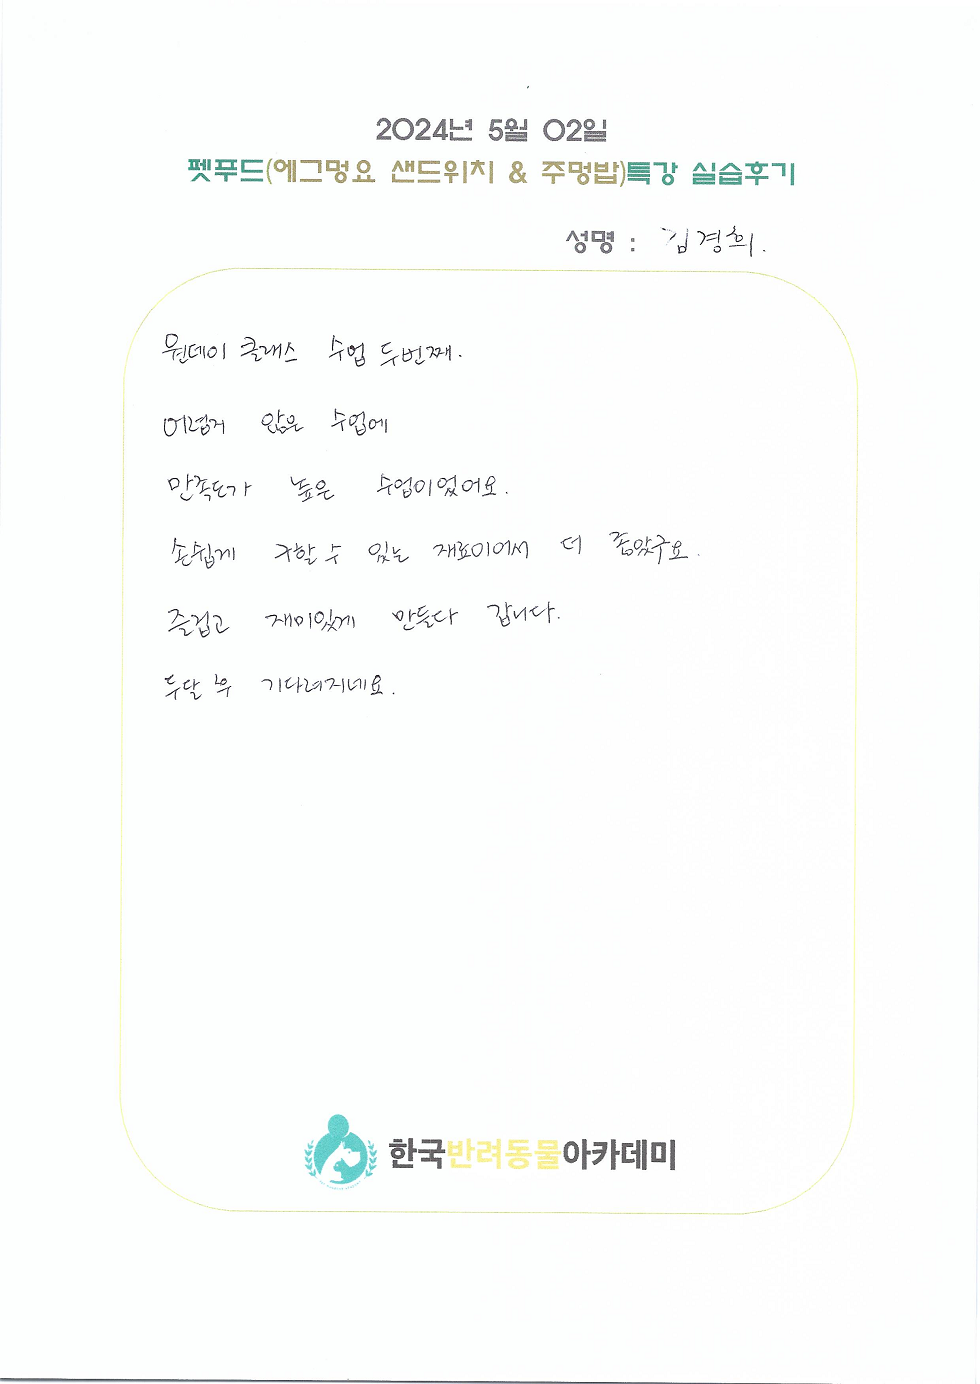 2024년 5월 02일
펫푸드(에그멍요 샌드위치 & 주멍밥)특강 실습후기
성명 : 김경희.
원데이 클래스 수업 두번째.
어렵지 않은 수업에
만족도가 높은 수업이었어요.
손쉽게 구할 수 있는 재료이어서 더 좋았구요.
즐겁고 재미있게 만들다 갑니다.
두달 후 기다려지네요.
한국반려동물아카데미